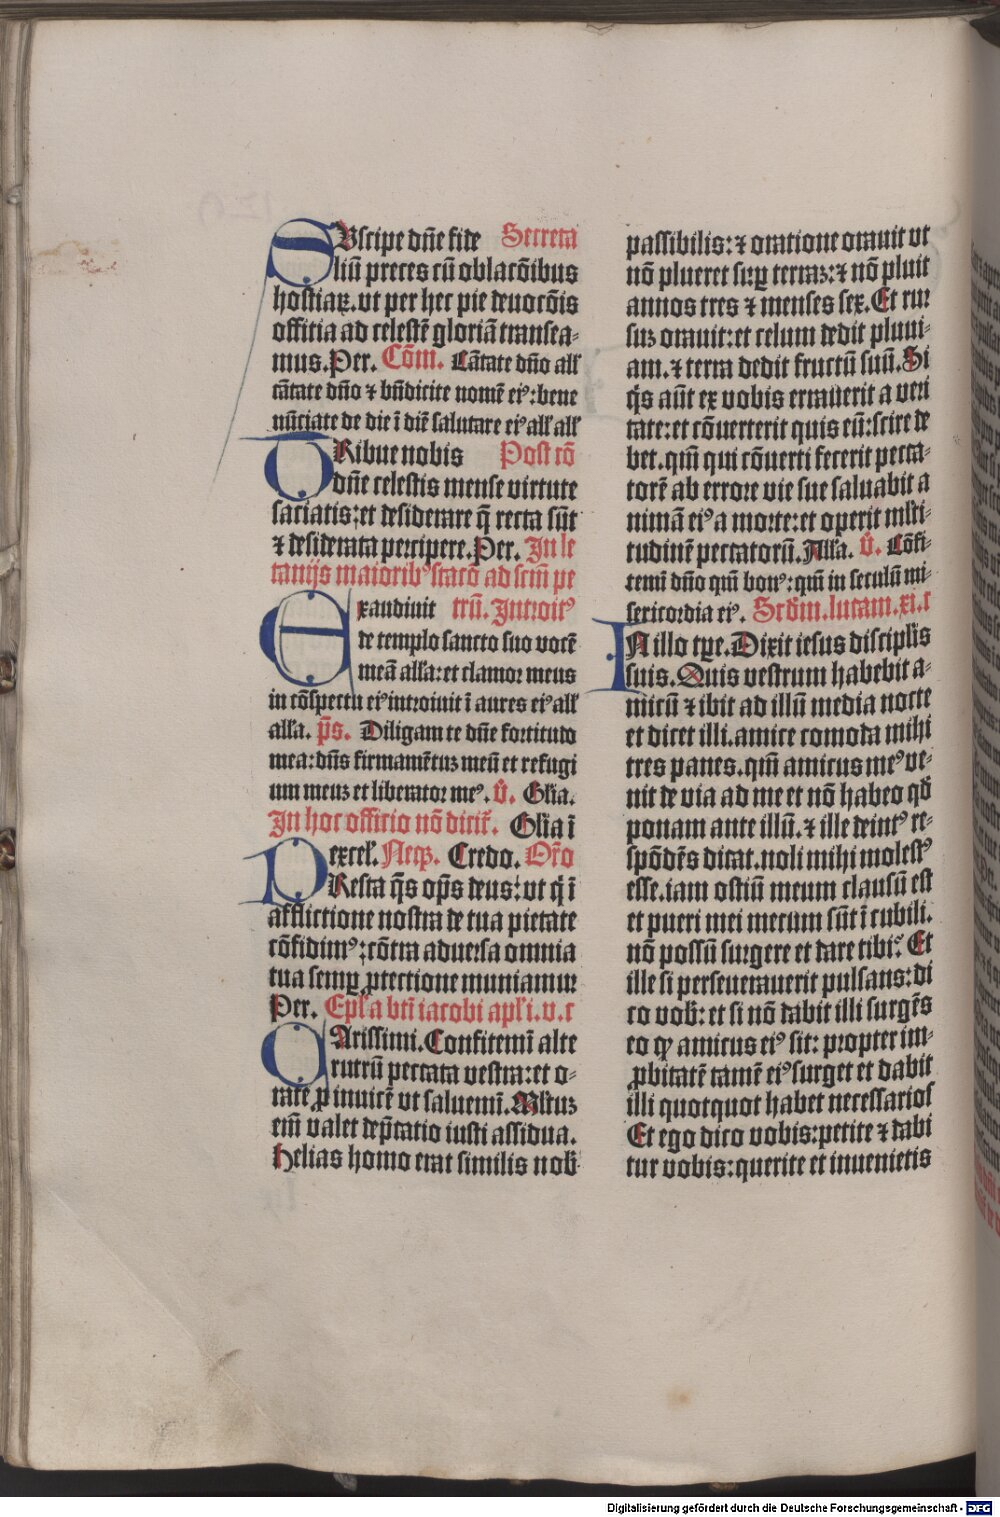 SVscipe dñe fide Secreta
liũ preces cũ oblacõibus
hostiaꝝ. vt per hec pie deuocõis
offitia ad celestẽ gloriã transea-
mus. Per. Cõm. Cãtate dño all'
cãtate dño ⁊ bñdicite nomẽ eiꝰ: bene
nũciate de die ĩ diẽ salutare eiꝰ all' all'
TRibue nobis Post cõ
dñe celestis mense virtute
saciatis: et desiderare q̃ recta sũt
⁊ desiderata percipere. Per. In le
tanijs maioribꝰ stacõ ad scm̃ pe
Exaudiuit trũ. Introitꝰ
de templo sancto suo vocẽ
meã all'a: et clamor meus
in cõspectu eiꝰ introiuit ĩ aures eiꝰ all'
all'a. p̃s. Diligam te dñe fortitudo
mea: dñs firmamẽtuꝫ meũ et refugi
um meuꝫ et liberator meꝰ. v̾. Gl'ia.
In hoc officio nõ dicit̾. Gl'ia ĩ
excel'. Neqꝫ. Credo. Or̃o
PResta q̃s op̃s deus: vt q̇ ĩ
afflictione nostra de tua pietate
cõfidimꝰ: cõtra aduersa omnia
tua semꝑ ꝓtectione muniamur
Per. Epl'a bt̃i iacobi apl'i. v. c
CArissimi. Confitemĩ alte
rutrũ peccata vestra: et o-
rate ꝓ inuicẽ vt saluemĩ. Mltuꝫ
em̃ valet dep̃catio iusti assidua.
Helias homo erat similis nob̾
passibilis: ⁊ oratione orauit vt
nõ plueret suꝑ terraꝫ: ⁊ nõ pluit
annos tres ⁊ menses sex. Et rur
suꝫ orauit: et celum dedit pluui-
am. ⁊ terra dedit fructũ suũ. Si
q̇s aũt ex vobis errauerit a veri
tate: et cõuerterit quis eũ: scire de
bet. qm̃ qui cõuerti fecerit pecca-
torẽ ab errore vie sue saluabit a
nimã eiꝰ a morte: et operit mlti-
tudinẽ peccatorũ. All'a. v̾. Cõfi-
temĩ dño qm̃ bonꝰ: qm̃ in seculũ mi-
sericordia eiꝰ. Scdm̃. lucam. xi. c
IN illo tꝑe. Dixit iesus discipl'is
suis. Quis vestrum habebit a-
micũ ⁊ ibit ad illũ media nocte
et dicet illi. amice comoda mihi
tres panes. qm̃ amicus meꝰ ve-
nit de via ad me et nõ habeo qd̾
ponam ante illũ. ⁊ ille deintꝰ re-
spõdẽs dicat. noli mihi molestꝰ
esse. iam ostiũ meum clausũ est
et pueri mei mecum sũt ĩ cubili.
nõ possũ surgere et dare tibi. Et
ille si perseuerauerit pulsans: di
co vob̾: et si nõ dabit illi surgẽs
eo ꝙ amicus eiꝰ sit: propter im-
ꝓbitatẽ tamẽ eiꝰ surget et dabit
illi quotquot habet necessarios
Et ego dico vobis: petite ⁊ dabi
tur vobis: querite et inuenietis
Digitalisierung gefördert durch die Deutsche Forschungsgemeinschaft - DFG